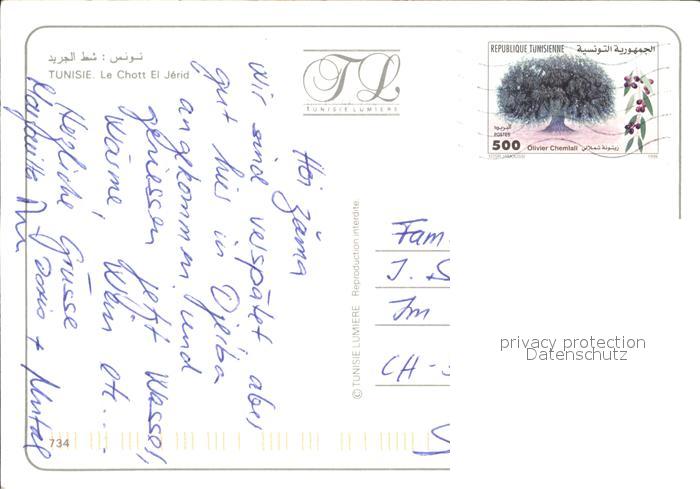 تونس : شط الجريد
TUNISIE. Le Chott El Jérid
TL
TUNISIE LUMIERE
REPUBLIQUE TUNISIENNE الجمهورية التونسية
البريد
POSTES
500 Olivier Chemlali زيتونة شملالي
Hoi zäma
Wir sind verspätet aber
gut hier in Djerba
angekommen und
geniessen jetzt Wasser,
Wärme, Wein etc....
Herzliche Grüsse
Margurita
© TUNISIE LUMIERE Reproduction interdite.
Fam.
J.
Im
CH-
privacy protection
Datenschutz
734